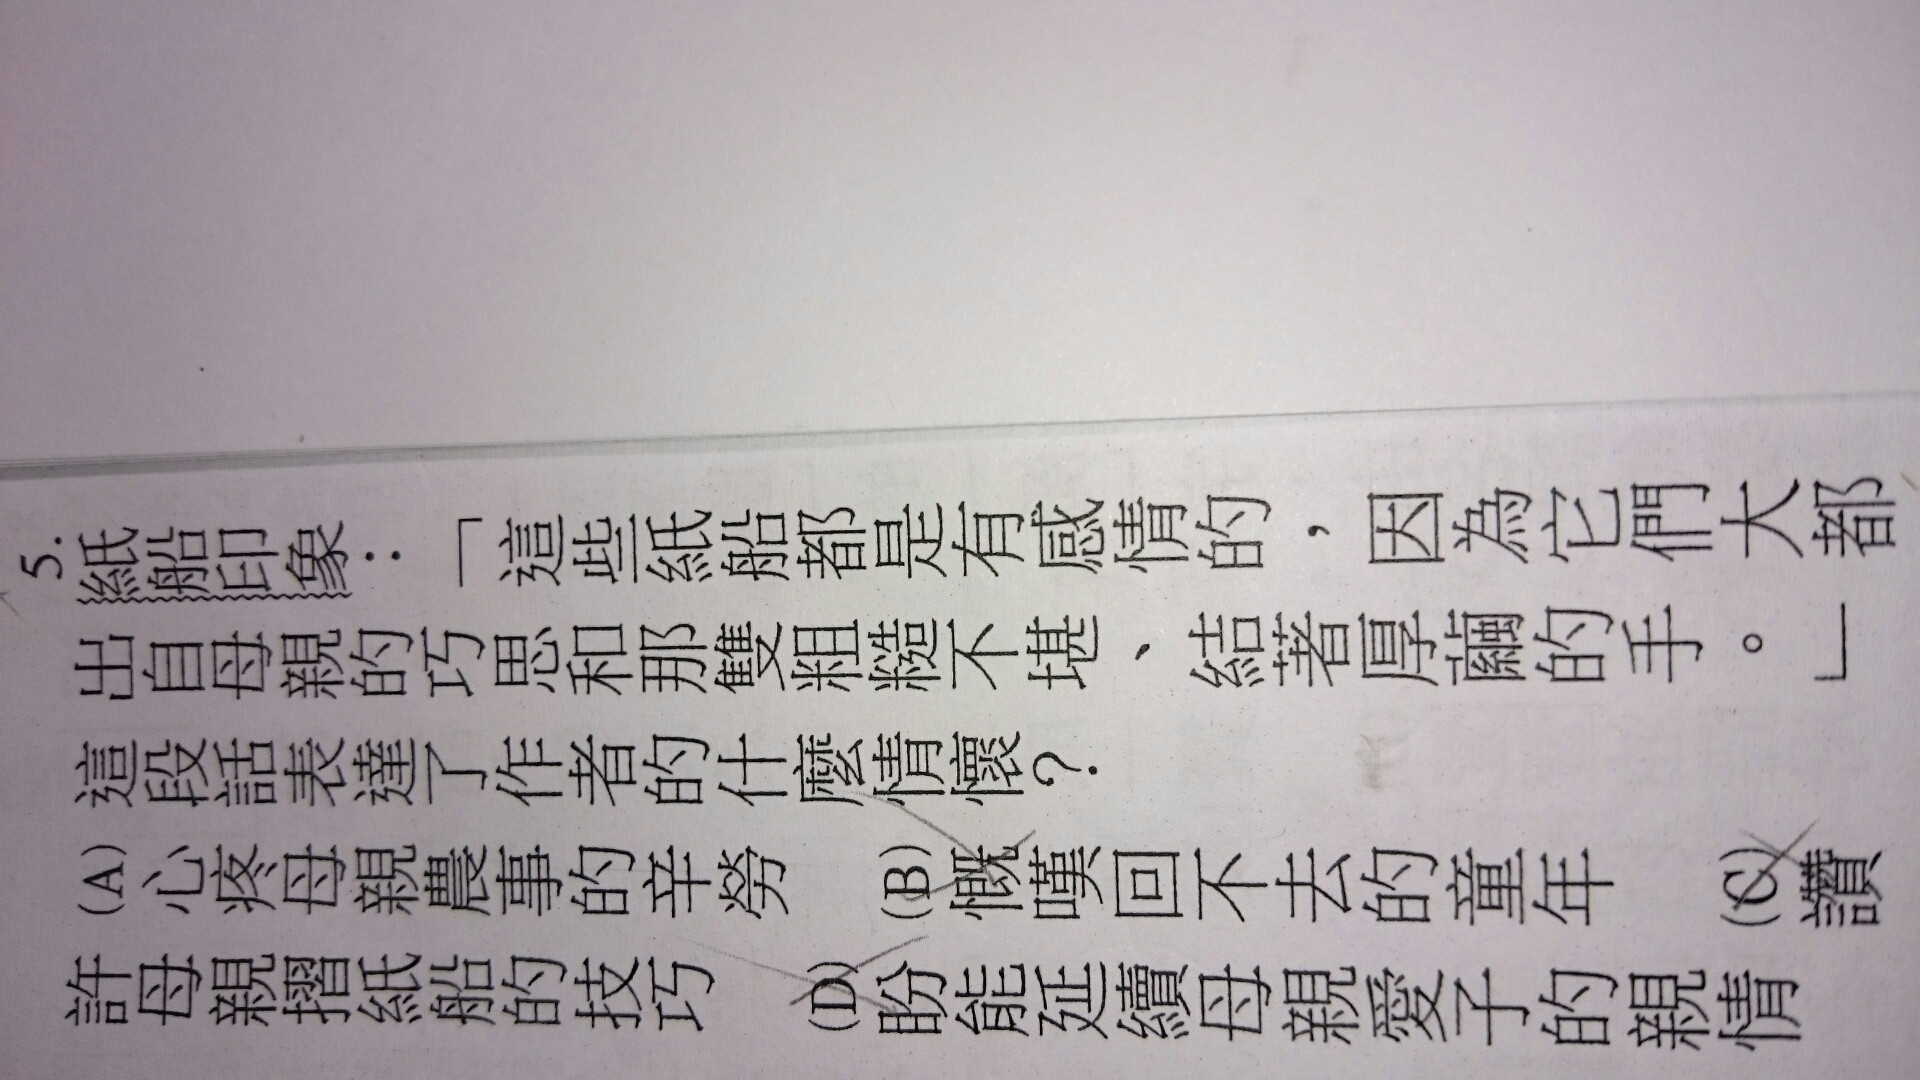 5.
紙船印象:「這些紙船都是有感情的,因為它們大都
出自母親的巧思和那雙粗糙不堪、結著厚繭的手。」
這段話表達了作者的什麼情懷?
(A)心疼母親農事的辛勞 (B)慨嘆回不去的童年 (C)讚
許母親摺紙船的技巧 (D)盼能延續母親愛子的親情